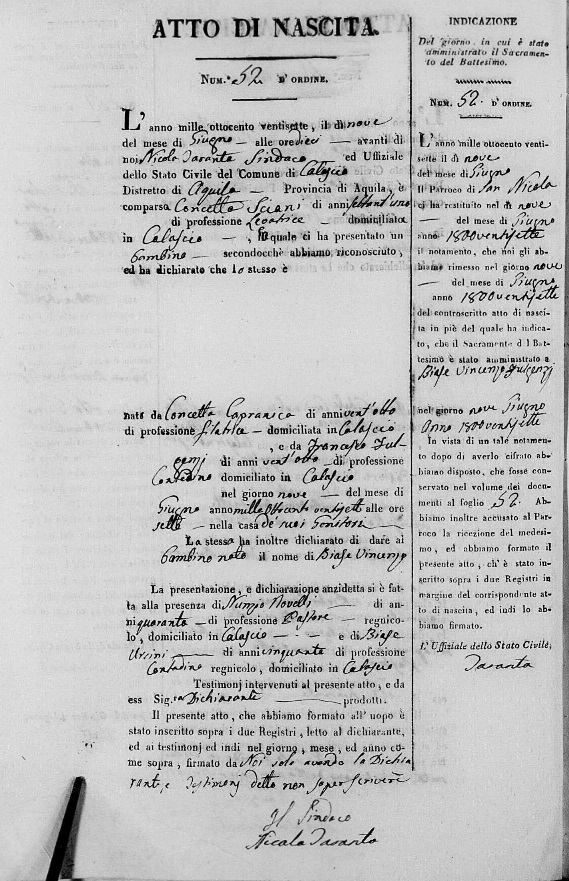 ATTO DI NASCITA.
Num.° 52 D'ORDINE.
L'anno mille ottocento ventisette, il dì nove
del mese di Giugno — alle ore dieci — avanti di
noi Nicola Taranta Sindaco ed Uffiziale
dello Stato Civile del Comune di Calascio
Distretto di Aquila — Provincia di Aquila, è
comparsa Concetta Sciani di anni settant'uno
di professione Levatrice — domiciliata
in Calascio — , la quale ci ha presentato un
bambino — secondocchè abbiamo riconosciuto,
ed ha dichiarato che lo stesso è
nato da Concetta Capranica di anni vent'otto
di professione filatrice — domiciliata in Calascio
, e da Francesco Ful-
genzj di anni vent'otto — di professione
Contadino domiciliato in Calascio
nel giorno nove — del mese di
Giugno anno mille ottocento ventisette alle ore
sette — nella casa de' suoi Genitori
La stessa ha inoltre dichiarato di dare al
bambino nato il nome di Biase Vincenzo
La presentazione, e dichiarazione anzidetta si è fat-
ta alla presenza di Nunzio Novelli — di an-
ni quaranta — di professione Pastore — regnico-
lo, domiciliato in Calascio — e di Biase
Ursini — di anni cinquanta di professione
Contadino regnicolo, domiciliato in Calascio
Testimonj intervenuti al presente atto, e da
ess Sig.ra Dichiarante prodotti.
Il presente atto, che abbiamo formato all' uopo è
stato inscritto sopra i due Registri, letto al dichiarante,
ed ai testimonj ed indi nel giorno, mese, ed anno co-
me sopra, firmato da Noi solo avendo la Dichia
rante, e Testimonj detto non saper scrivere
Il Sindaco
Nicola Taranta
INDICAZIONE
Del giorno, in cui è stato
amministrato il Sacramen-
to del Battesimo.
Num. 52. D'ORDINE.
L'anno mille ottocento venti-
sette il dì nove
del mese di Giugno
Il Parroco di San Nicola
ci ha restituito nel dì nove
— del mese di Giugno
anno 1800ventisette
il notamento, che noi gli ab-
biamo rimesso nel giorno nove
— del mese di Giugno
anno 1800ventisette
del controscritto atto di nasci-
ta in piè del quale ha indica-
to, che il Sacramento d l Bat-
tesimo è stato amministrato a
Biase Vincenzo Fulgenzj
nel giorno nove Giugno
Anno 1800ventisette
In vista di un tale notamento
dopo di averlo cifrato ab-
biamo disposto, che fosse con-
servato nel volume dei docu-
menti al foglio 52. Ab-
biamo inoltre accusato al Par-
roco la ricezione del medesi-
mo, ed abbiamo formato il
presente atto, ch' è stato in-
scritto sopra i due Registri in
margine del corrispondente at-
to di nascita, ed indi lo ab-
biamo firmato.
L'Uffiziale dello Stato Civile,
Taranta